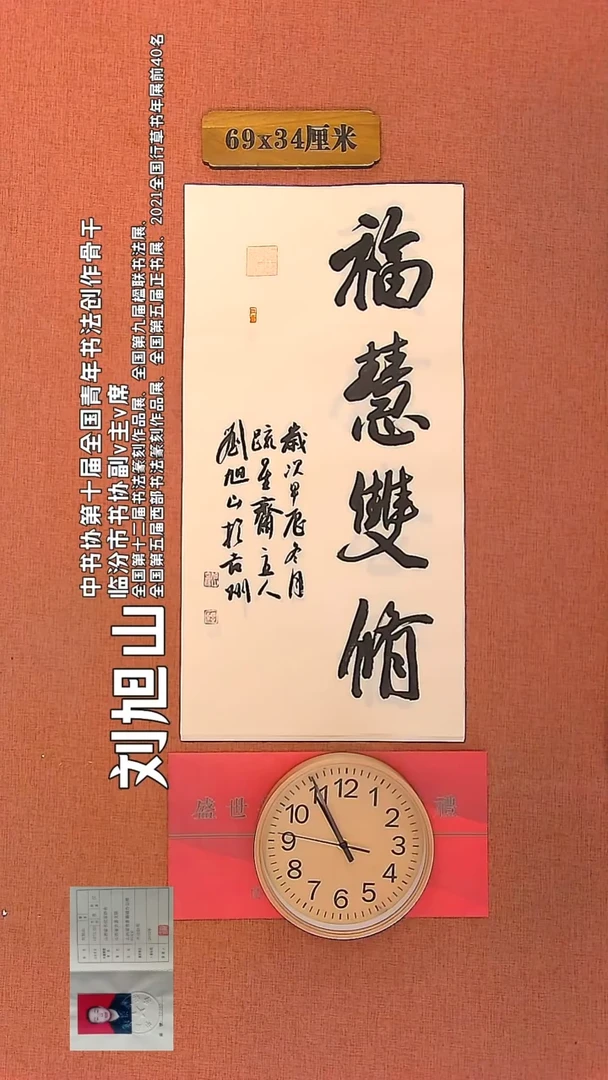 69x34厘米
福慧雙脩
歲次甲辰冬月
疏星齋主人
劉旭山於吉州
刘旭山
中书协第十届全国青年书法创作骨干
临汾市书协副v主v席
全国第十二届书法篆刻作品展、全国第九届楹联书法展、
全国第五届西部书法篆刻作品展、全国第五届正书展、2021全国行草书年展前40名
盛世
禮
12
1
2
3
4
5
6
7
8
9
10
11